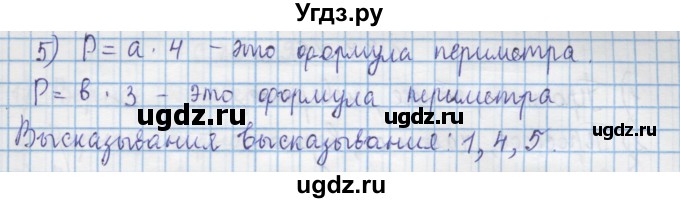 Угдз.ру
5) P = a · 4 - это формула периметра.
P = в · 3 - это формула периметра
Высказывания высказывания: 1, 4, 5.
ugdz.ru ugdz.ru
ugdz.ru ugdz.ru